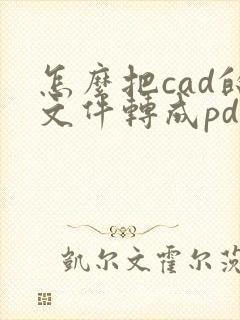 怎麼把cad的
文件轉成pd
凱尔文霍尔茨